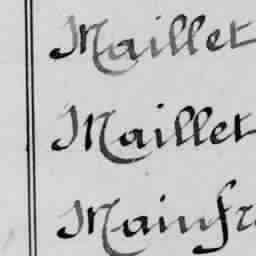 Maillet
Maillet
Mainfr